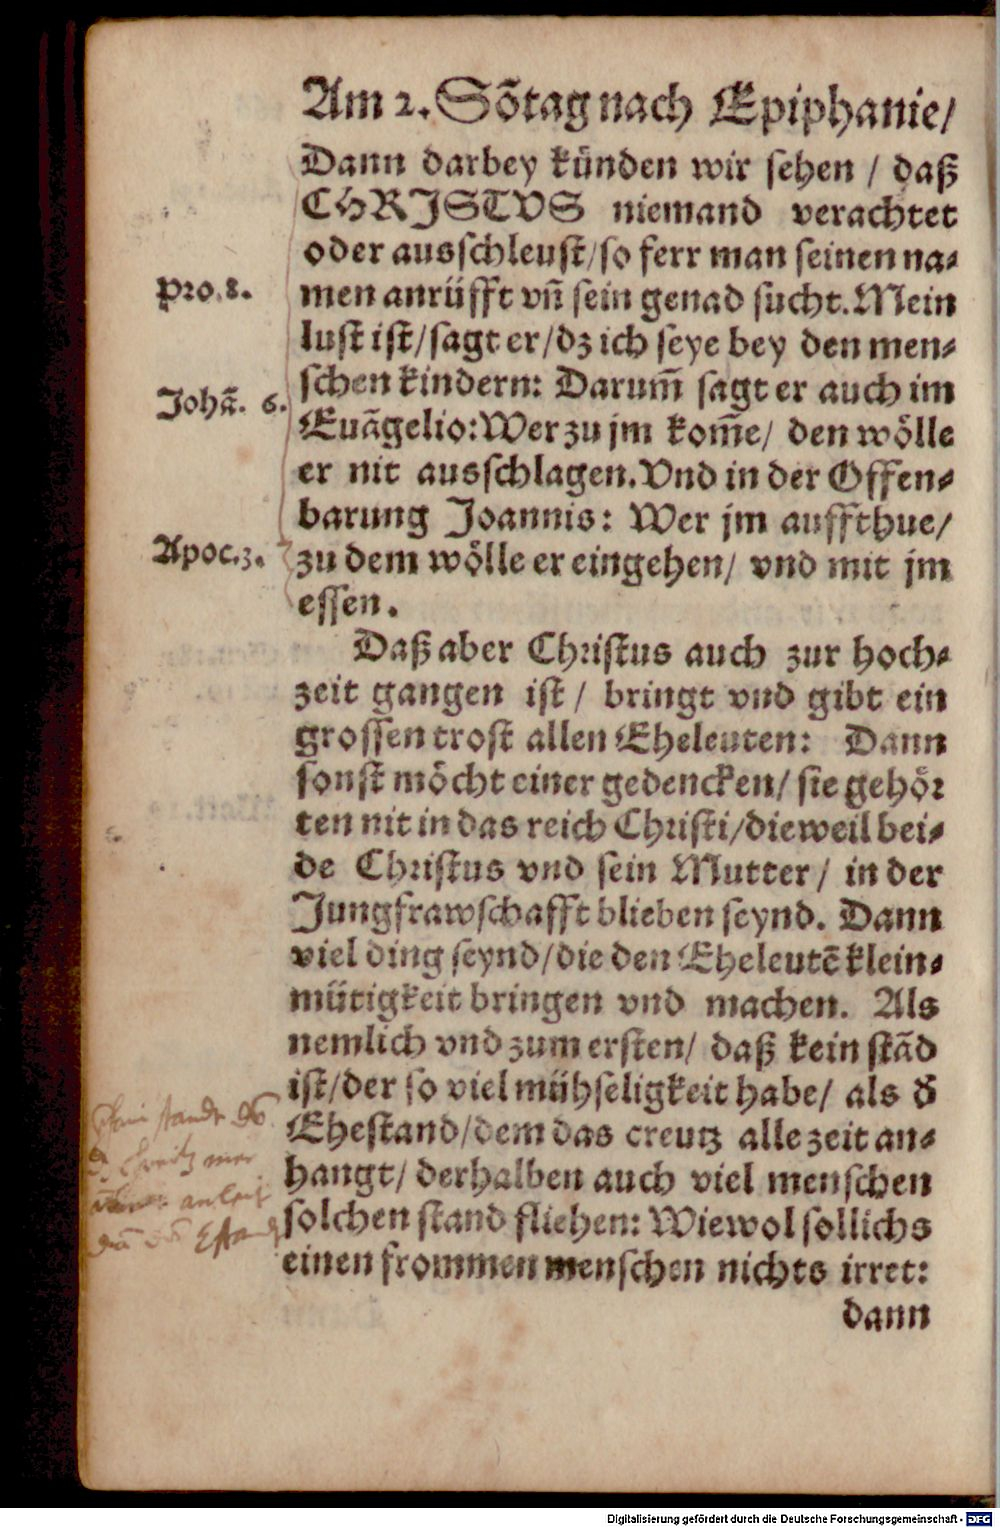 Am 2. Sõtag nach Epiphanie/
Dann darbey künden wir sehen / daß
CHRISTVS niemand verachtet
oder ausschleust/so ferr man seinen na⸗
pro. 8.
men anrüfft vñ sein genad sucht. Mein
lust ist/sagt er/dz ich seye bey den men⸗
schen kindern: Darum̃ sagt er auch im
Johã. 6.
Euãgelio: Wer zu jm kom̃e/ den wölle
er nit ausschlagen. Vnd in der Offen⸗
barung Joannis: Wer jm auffthue/
Apoc. 3.
zu dem wölle er eingehen/ vnd mit jm
essen.
Daß aber Christus auch zur hoch⸗
zeit gangen ist / bringt vnd gibt ein
grossen trost allen Eheleuten: Dann
sonst möcht einer gedencken/ sie gehör
ten nit in das reich Christi/dieweil bei⸗
de Christus vnd sein Mutter/ in der
Jungfrawschafft blieben seynd. Dann
viel ding seynd/die den Eheleutẽ klein⸗
mütigkeit bringen vnd machen. Als
nemlich vnd zum ersten/ daß kein stãd
ist/der so viel mühseligkeit habe/ als d̃
Ehestand/dem das creutz alle zeit an⸗
hangt/ derhalben auch viel menschen
solchen stand fliehen: Wiewol sollichs
einen frommen menschen nichts irret:
dann
Digitalisierung gefördert durch die Deutsche Forschungsgemeinschaft - DFG